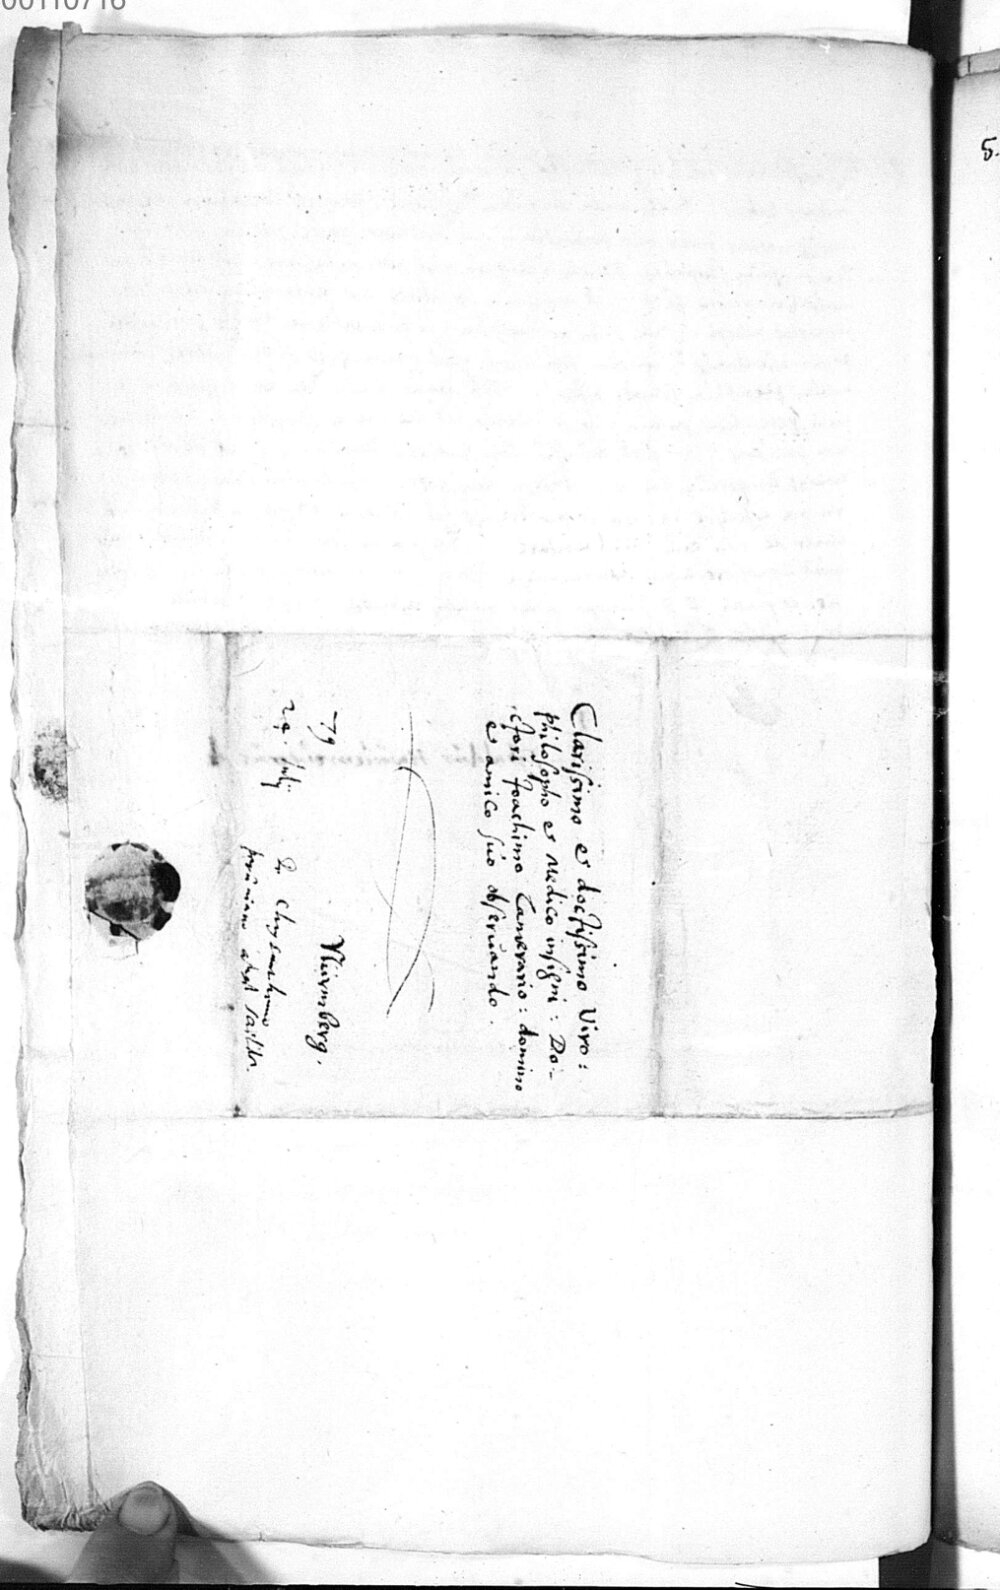 00110716
5.
Clarissimo et doctissimo Viro:
philosopho et medico insigni: Do-
ctori Joachimo Camerario: domino
et amico suo observando.
Nürmberg.
79
29. Julij
D Chrysanthemo
peruviano